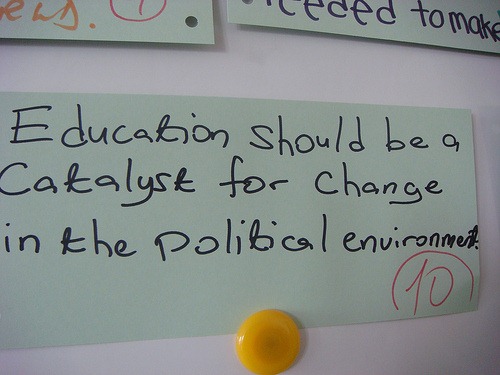 ews. 1
needed to make
Education should be a
Catalyst for change
in the political environment.
10